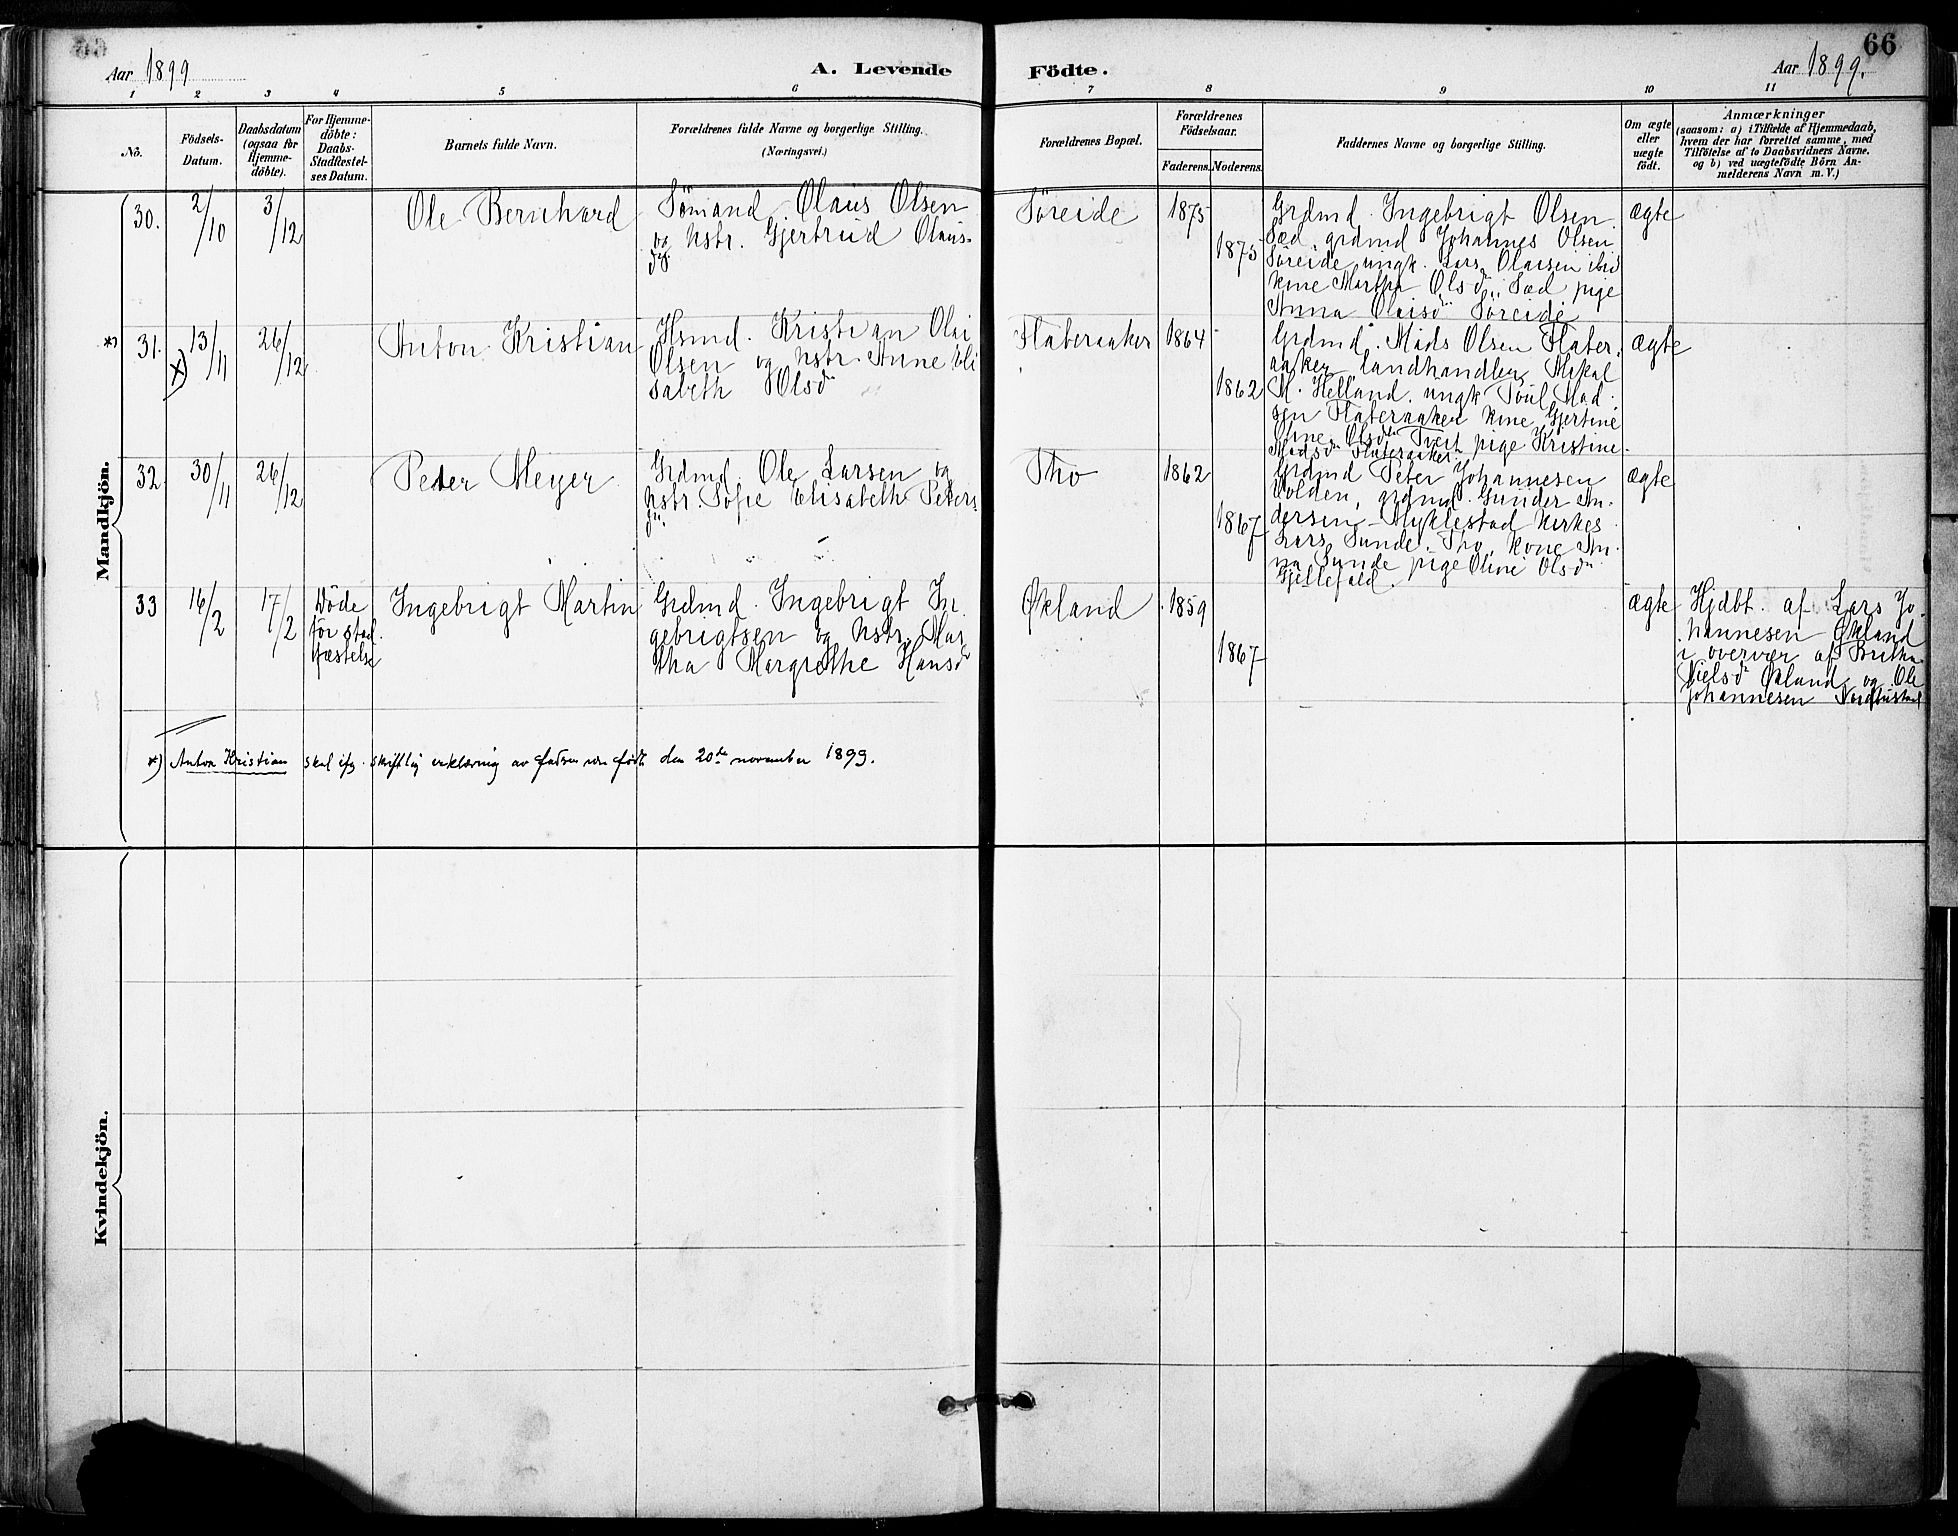 66
Aar 1899
A. Levende Födte.
Aar 1899.
1 2 3 4 5 6 7 8 9 10 11
No.
Födsels-
Datum.
Daabsdatum
(ogsaa for
Hjemme-
döbte).
For Hjemme-
döbte:
Daabs-
Stadfæstel-
ses Datum.
Barnets fulde Navn.
Forældrenes fulde Navne og borgerlige Stilling.
(Næringsvei.)
Forældrenes Bopæl.
Forældrenes
Födselsaar.
Faderens.
Moderens.
Faddernes Navne og borgerlige Stilling.
Om ægte
eller
uægte
födt.
Anmærkninger
(saasom: a) i Tilfælde af Hjemmedaab,
hvem der har forrettet samme, med
Tilföielse af to Daabsvidners Navne.
og b) ved uægtefödte Börn An-
melderens Navn m. V.)
Mandkjön.
30.
2/10
3/12
Ole Bernhard
Sømand Olaus Olsen
og hstr. Gjertrud Olaus-
dtr.
Søreide
1875
1875
Grdmd. Ingebrigt Olsen
Sæd, grdmd Johannes Olsen
Søreide, ungk. Lars Olausen ibid
kone Martha Olsdr. Sæd pige
Anna Olaisdr Søreide
ægte
*)
31.
x)
13/11
26/12
Anton Kristian
Hsmd. Kristian Olai
Olsen og hstr Anne Eli
sabeth Olsdr
Flateraaker
1864
1862
Grdmd. Mads Olsen Flater-
aaker, landhandler Mikal
M. Helland, ungk Poul Mad-
sen Flateraaker kone Gjertine
Oline Olsdtr Tveit pige Kristine
Madsdr Flateraaker
ægte
32
30/11
26/12
Peder Meyer
Grdmd. Ole Larsen og
hstr. Sofie Elisabeth Peters
dr.
Tho
1862
1867
Grdmd Peter Johannesen
Volden, grdmd. Gunder An-
dersen Myklestad kirkes.
Lars Sunde. Tho, kone An-
na Sunde pige Oline Olsdr
Gjellefald.
ægte
33
16/2
17/2
Døde
før stad-
fæstelse
Ingebrigt Martin
Grdmd. Ingebrigt In-
gebrigtsen og hstr. Mar-
tha Margrethe Hansdr
Økland
1859
1867
ægte
Hjdbt. af Lars Jo-
hannesen Økland
i overvær af Britha
Nielsdr Økland og Ole
Johannesen Nordhustad
*) Anton Kristian skal ifg. skriftlig erklæring av faderen være født den 20de november 1899.
Kvindekjön.